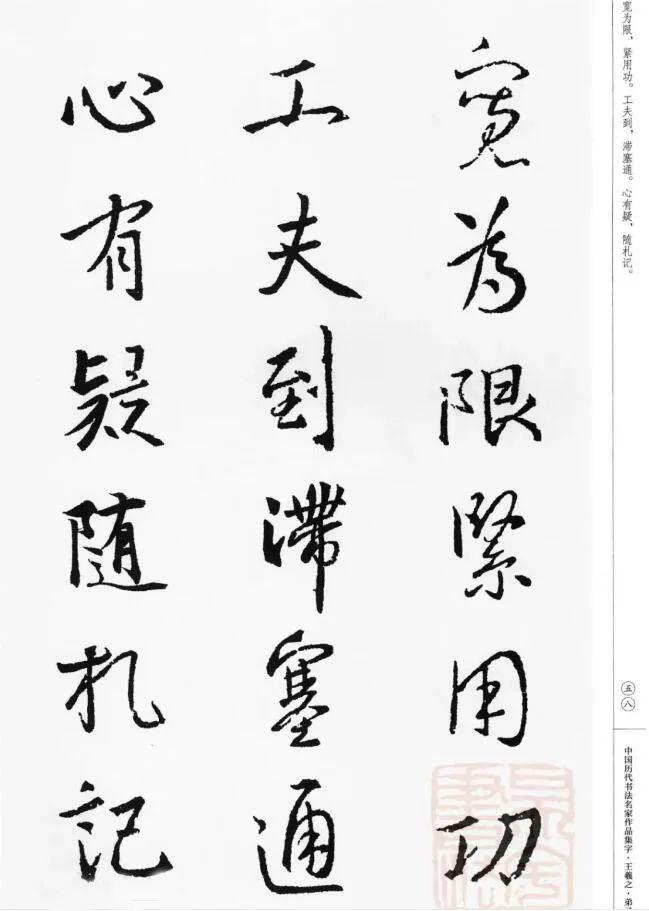 寛为限，紧用功。工夫到，滞塞通。心有疑，随札记。
寬為限緊用功
工夫到滯塞通
心有疑隨札記
五八
中国历代书法名家作品集字·王羲之·弟